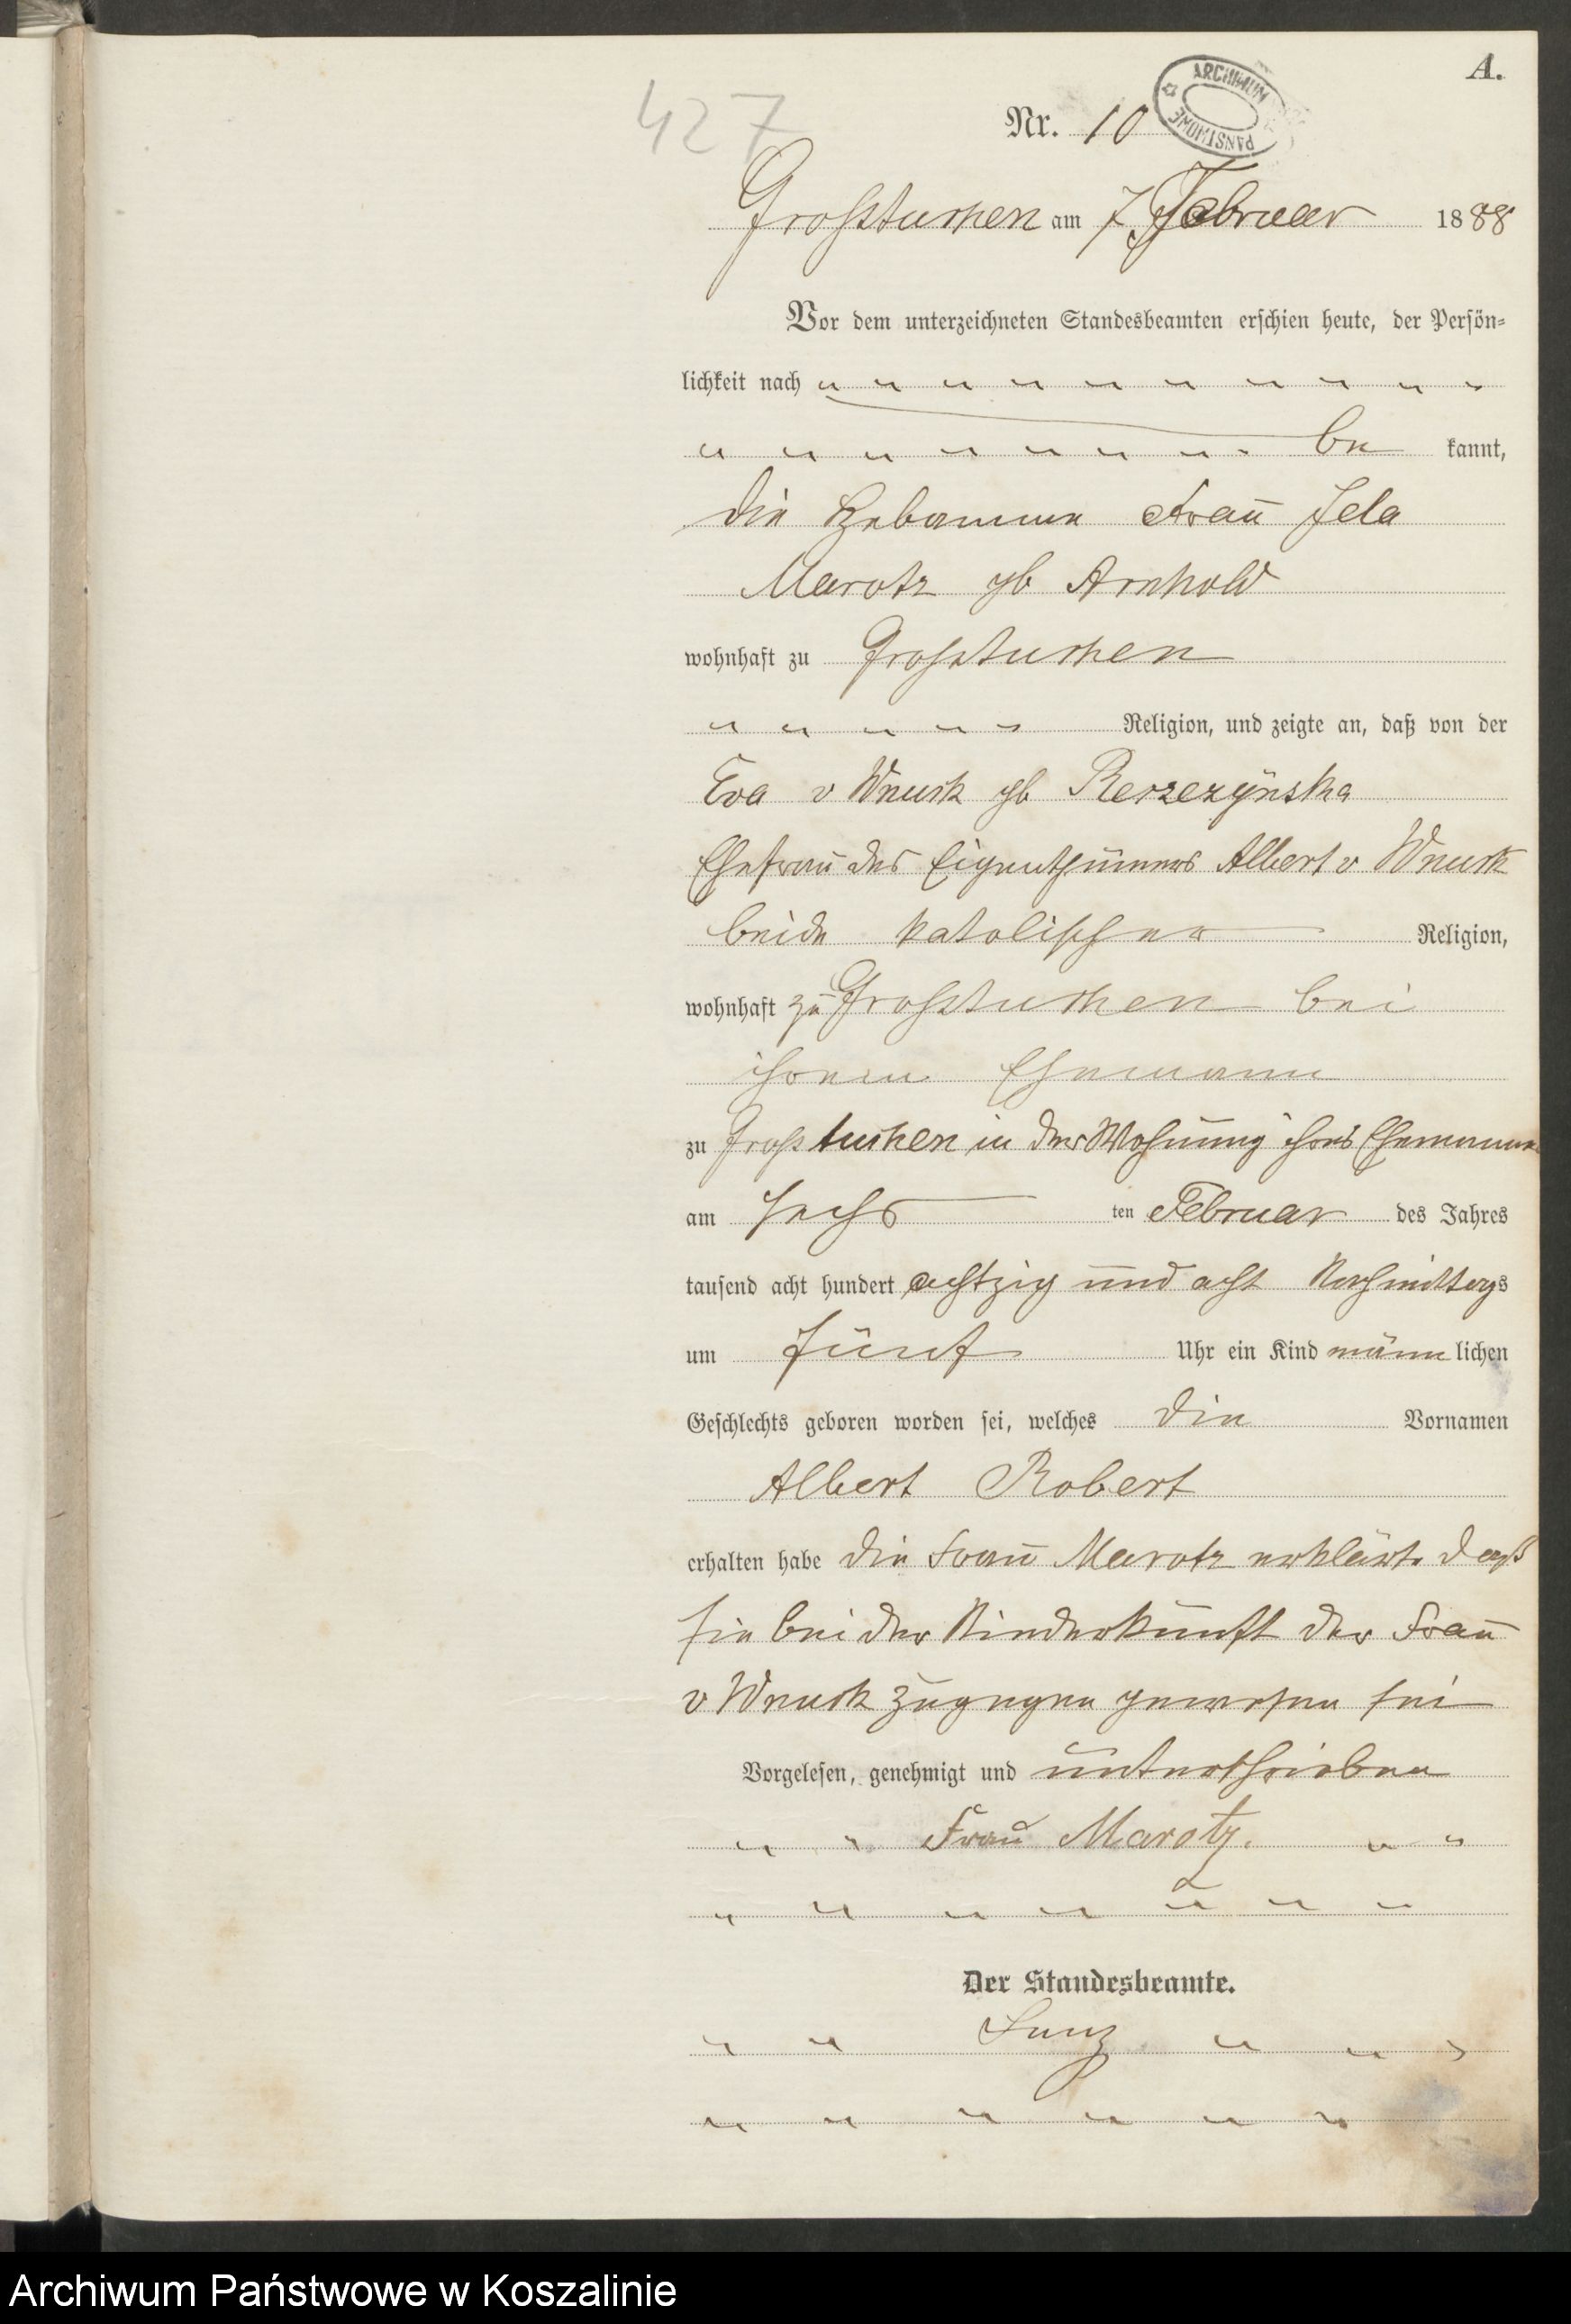 A.
427
Nr. 10
ARCHIWUM PAŃSTWOWE
Großtuchen am 7. Februar 1888
Vor dem unterzeichneten Standesbeamten erschien heute, der Persön-
lichkeit nach
be kannt,
die Hebamme Frau
Marotz gb Arnhold
wohnhaft zu Großtuchen
Religion, und zeigte an, daß von der
Eva v Wnuck gb
Ehefrau des Eigenthümers Albert v Wnuck
beide katolischer Religion,
wohnhaft zu Großtuchen bei
ihrem Ehemann
zu Großtuchen in der Wohnung ihres Ehemannes
am sechs ten Februar des Jahres
tausend acht hundert achtzig und acht Nachmittags
um fünf Uhr ein Kind männ lichen
Geschlechts geboren worden sei, welches die Vornamen
Albert Robert
erhalten habe die Frau Marotz erklärte daß
sie bei der Niederkunft der Frau
v Wnuck zugegen gewesen sei
Vorgelesen, genehmigt und unterschrieben
Frau Marotz.
Der Standesbeamte.
Archiwum Państwowe w Koszalinie